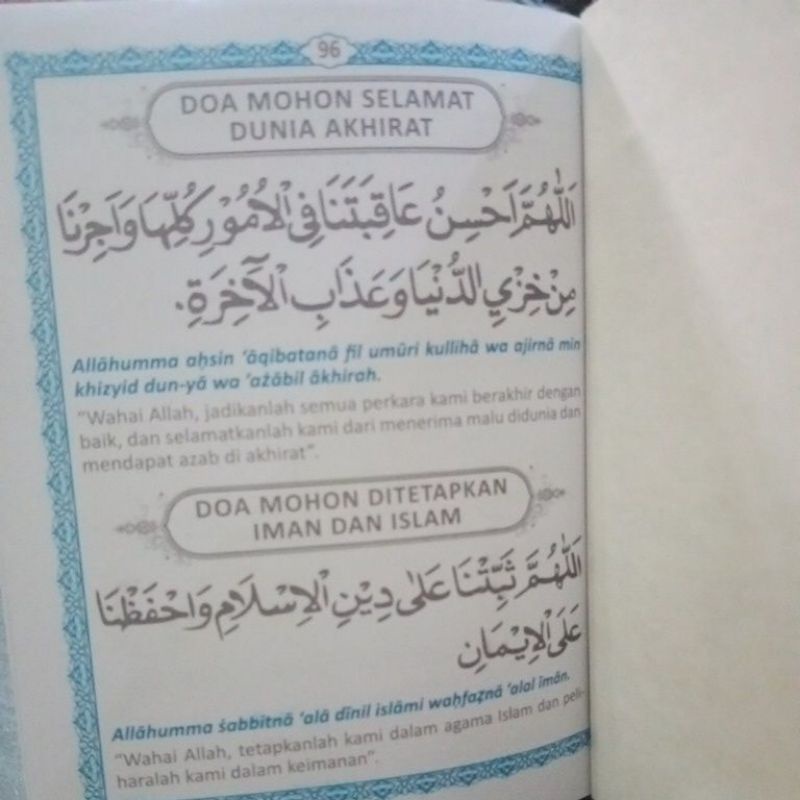 96
DOA MOHON SELAMAT
DUNIA AKHIRAT
اَللّٰهُمَّ اَحْسِنْ عَاقِبَتَنَا فِى الْاُمُوْرِ كُلِّهَا وَاَجِرْنَا
مِنْ خِزْيِ الدُّنْيَا وَعَذَابِ الْآخِرَةِ.
Allāhumma aḥsin ‘āqibatanā fil umūri kullihā wa ajirnā min
khizyid dun-yā wa ‘ażābil ākhirah.
“Wahai Allah, jadikanlah semua perkara kami berakhir dengan
baik, dan selamatkanlah kami dari menerima malu didunia dan
mendapat azab di akhirat”.
DOA MOHON DITETAPKAN
IMAN DAN ISLAM
اَللّٰهُمَّ ثَبِّتْنَا عَلٰى دِيْنِ الْاِسْلَامِ وَاحْفَظْنَا
عَلَى الْاِيْمَانِ
Allāhumma śabbitnā ‘alā dīnil islāmi waḥfaẓnā ‘alal īmān.
“Wahai Allah, tetapkanlah kami dalam agama Islam dan peli-
haralah kami dalam keimanan”.